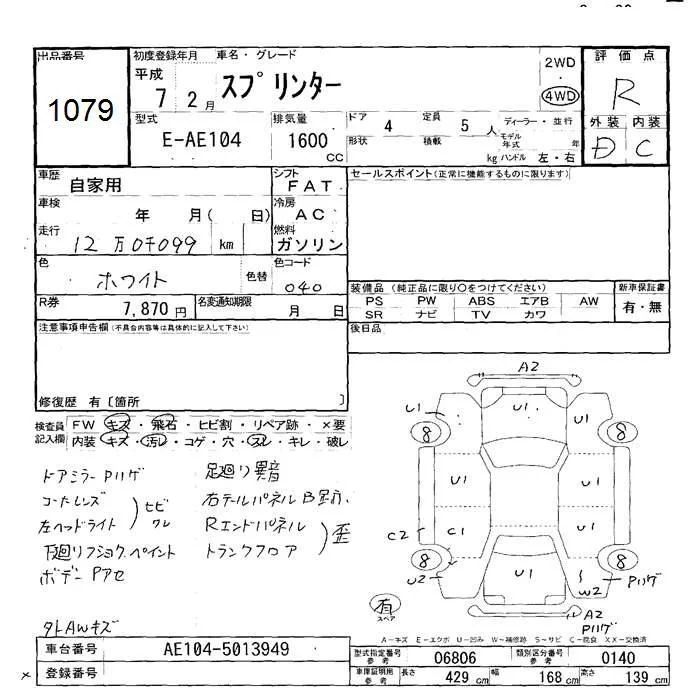 出品番号
1079
初度登録年月
車名・グレード
平成
7 2月
スプリンター
2WD
・
4WD
評価点
R
型式
E-AE104
排気量
1600
CC
ドア
4
定員
5 人
ディーラー・並行
形状
積載
kg
モデル年式
年
ハンドル 左・右
外装 内装
D C
車歴
自家用
シフト
FAT
セールスポイント(正常に機能するものに限ります)
車検
年 月( 日)
冷房
AC
走行
12万0千099 km
燃料
ガソリン
色
ホワイト
色替
色コード
040
装備品 (純正品に限り○をつけてください)
新車保証書
PS PW ABS エアB AW
SR ナビ TV カワ
有・無
R券
7,870円
名変通知期限
月 日
後日品
注意事項申告欄(不具合内容等は具体的に記入して下さい)
修復歴 有〔箇所 〕
検査員記入欄
FW キズ・飛石・ヒビ割・リペア跡・×要
内装 キズ・汚レ・コゲ・穴・スレ・キレ・破レ
ドアミラーPハゲ
コーナーレンズ
左ヘッドライト
ヒビワレ
下廻リフショクペイント
ボデーPアセ
外AWキズ
足廻リ異音
右テールパネル
Rエンドパネル
トランクフロア
歪
A2
U1
U1
U1
8
8
U1
U1
C2
C1
U1
8
8
U2
U1
W2
Pハゲ
有
スペア
A2
Pハゲ
A－キズ E－エクボ U－凹み W－補修跡 S－サビ C－腐食 XX－交換済
車台番号
AE104-5013949
登録番号
型式指定番号
参考
06806
類別区分番号
参考
0140
車庫証明用
参考
長さ
429 cm
幅
168 cm
高さ
139 cm